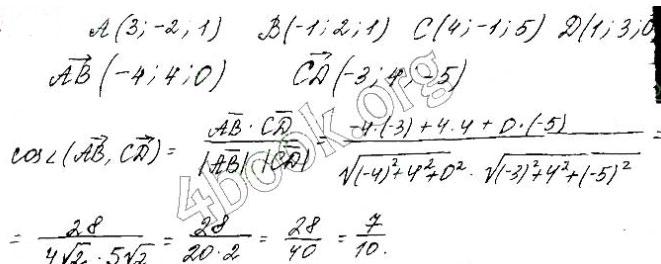 A(3;-2;1) B(-1;2;1) C(4;-1;5) D(1;3;0
AB(-4;4;0) CD(-3;4;-5)
cos∠(AB, CD) = AB·CD / |AB|·|CD| = -4·(-3)+4·4+0·(-5) / √(-4)²+4²+0² · √(-3)²+4²+(-5)² =
= 28 / 4√2·5√2 = 28 / 20·2 = 28 / 40 = 7 / 10.
4book.org